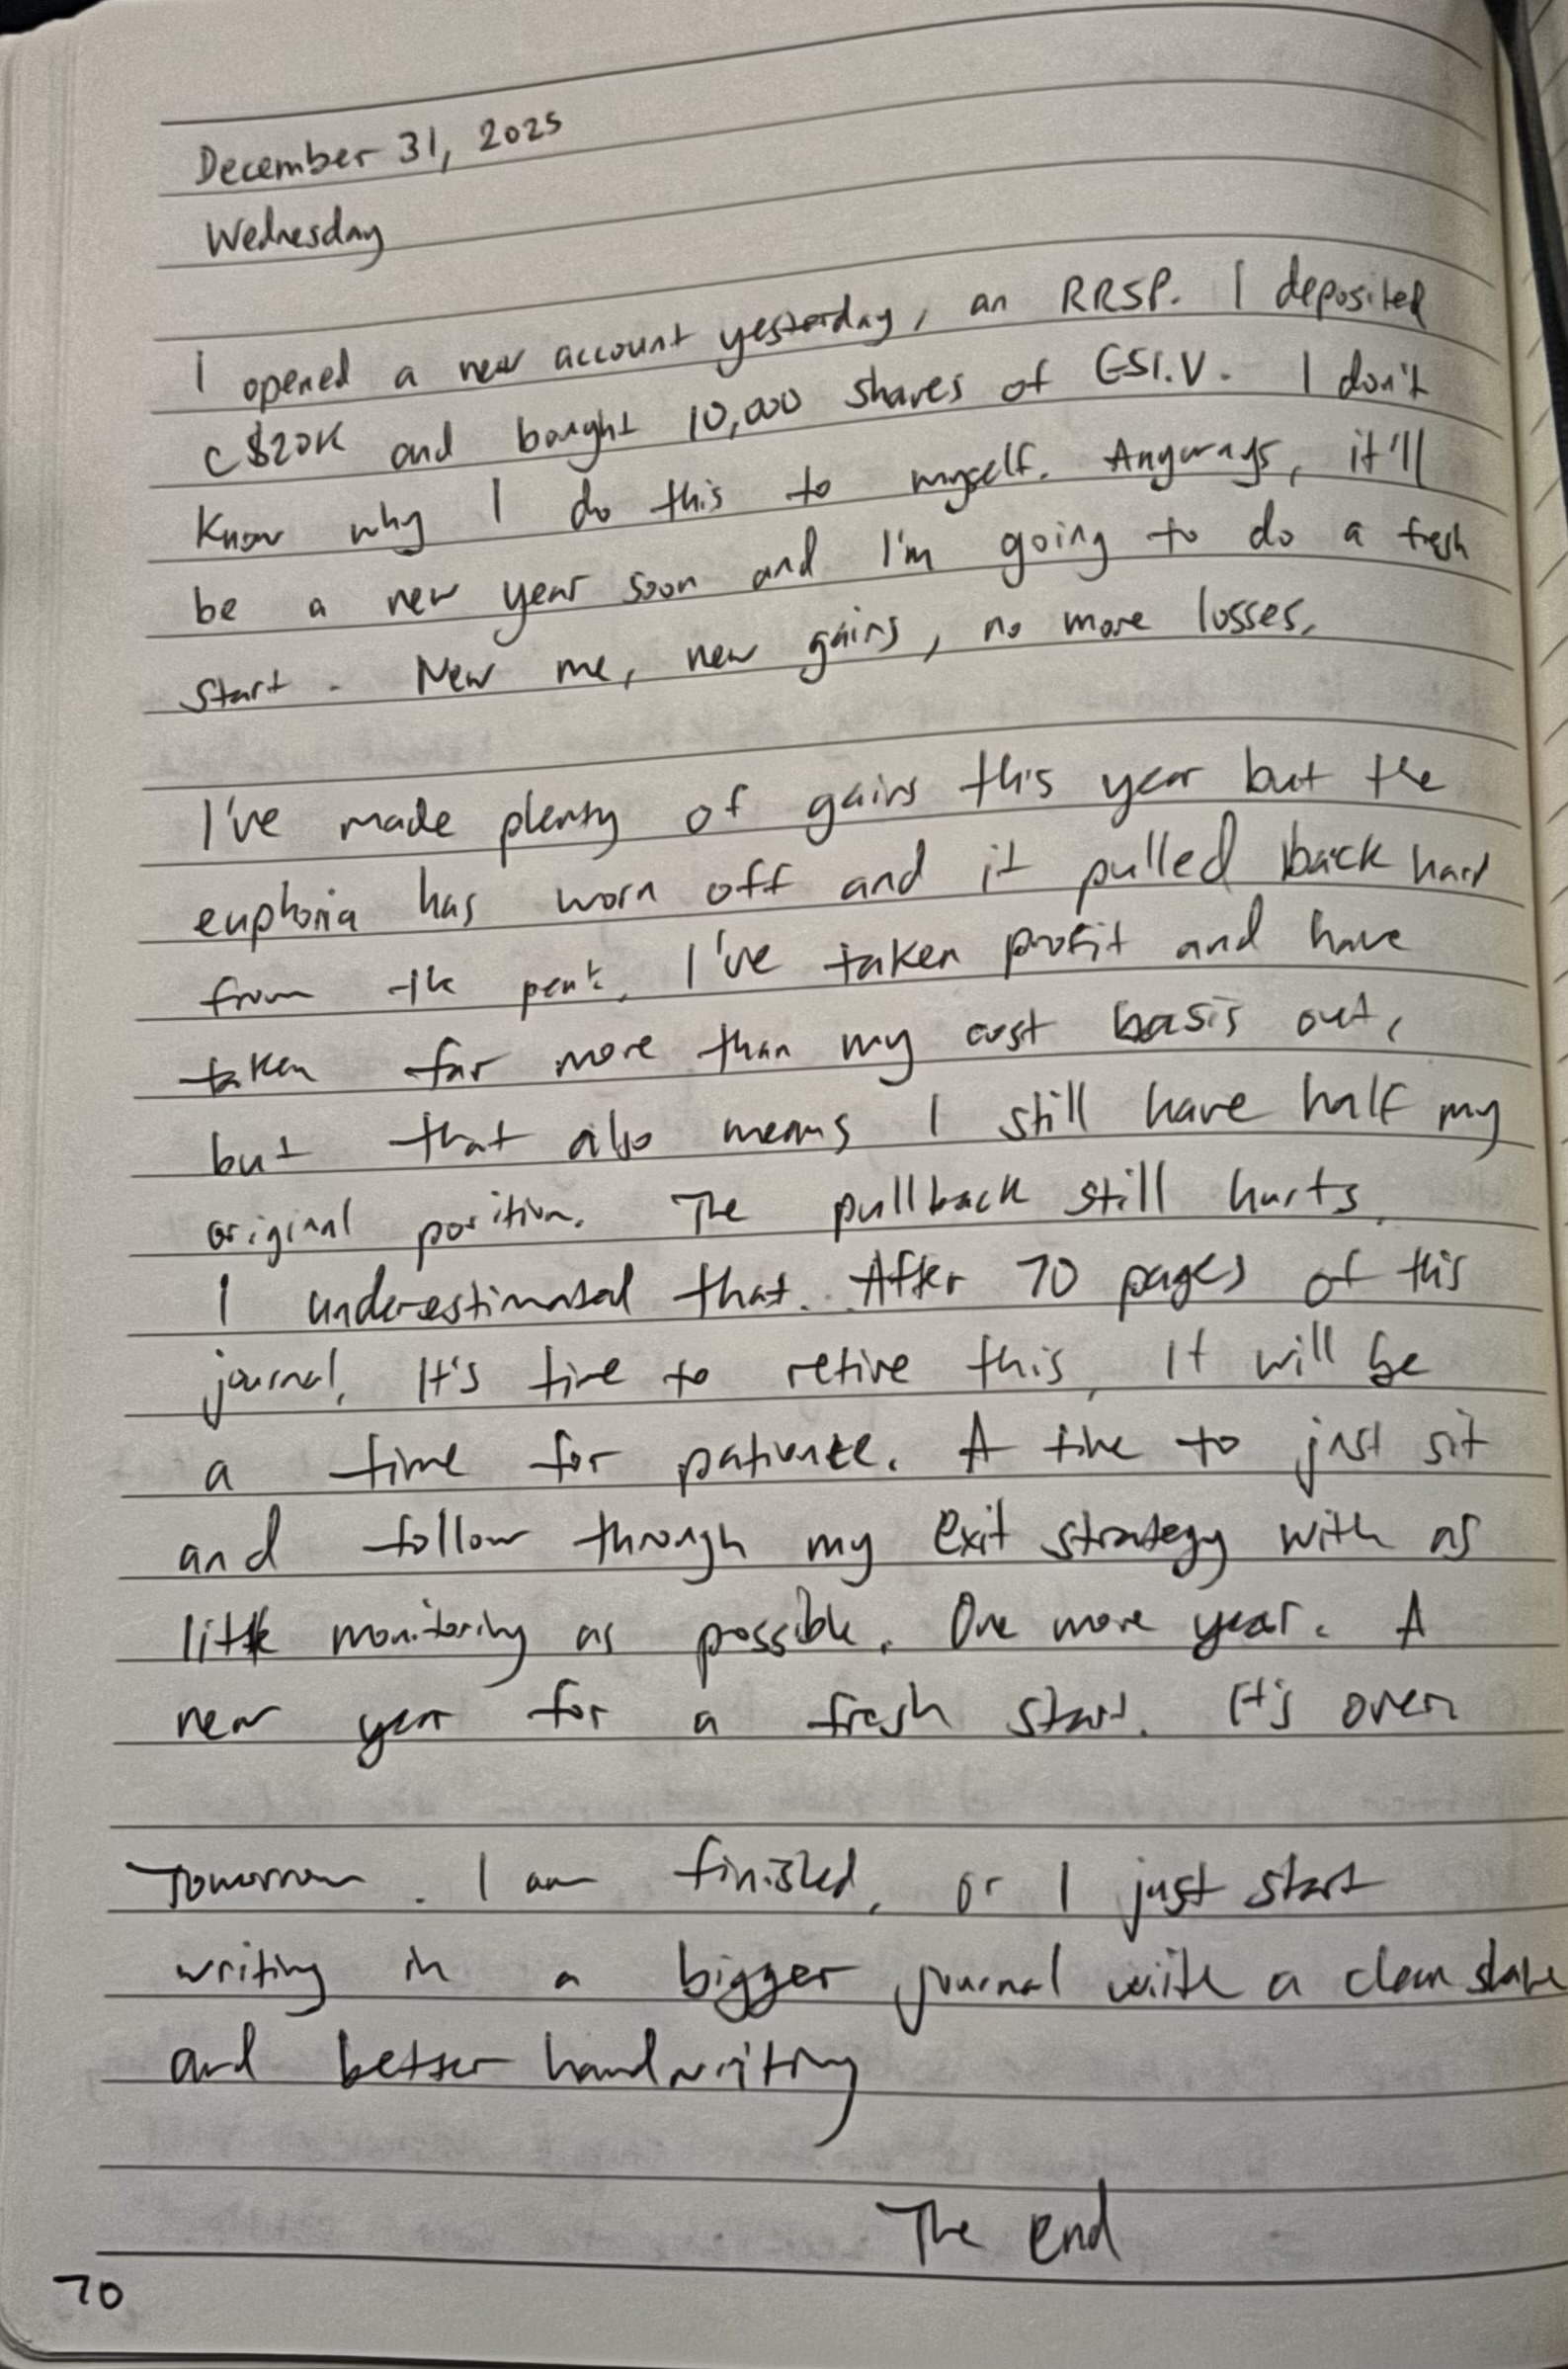 December 31, 2025
Wednesday
I opened a new account yesterday, an RRSP. I deposited
C$20K and bought 10,000 shares of ESI.V. I don't
know why I do this to myself. Anyways, it'll
be a new year soon and I'm going to do a fresh
start. New me, new gains, no more losses.
I've made plenty of gains this year but the
euphoria has worn off and it pulled back hard
from the peak. I've taken profit and have
taken far more than my cost basis out,
but that also means I still have half my
original position. The pullback still hurts.
I underestimated that. After 70 pages of this
journal, It's time to retire this, It will be
a time for patience. A time to just sit
and follow through my exit strategy with as
little monitoring as possible. One more year. A
new year for a fresh start. It's over
Tomorrow. I am finished, or I just start
writing in a bigger journal with a clean slate
and better handwriting
The end
70